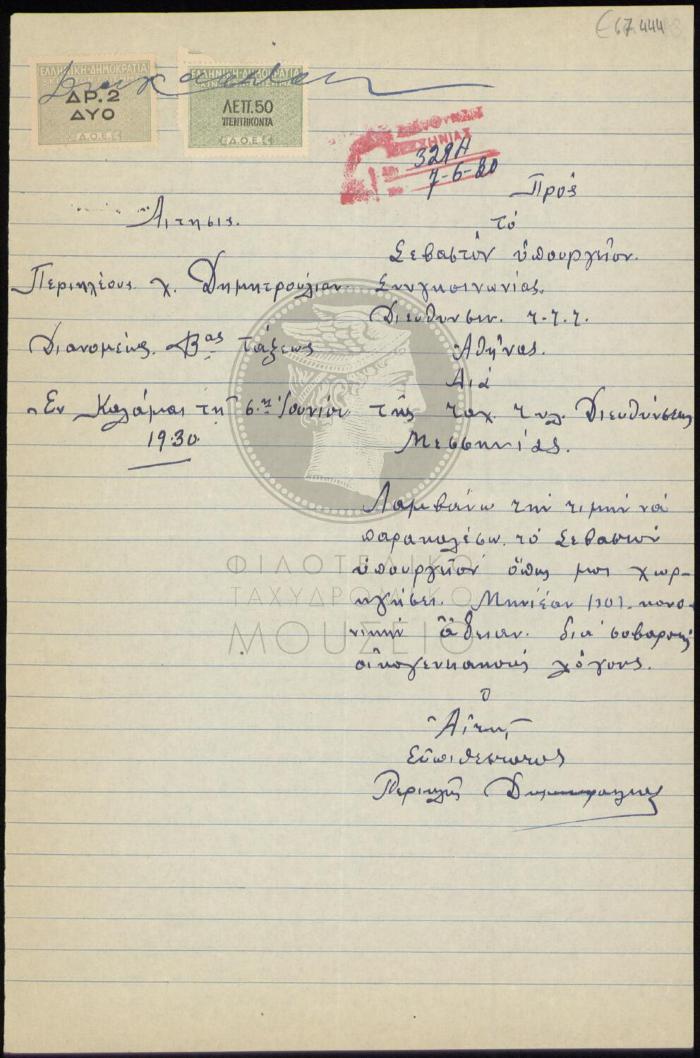 Ε67.444
ΕΛΛΗΝΙΚΗ ΔΗΜΟΚΡΑΤΙΑ
ΔΡ. 2
ΔΥΟ
Δ.Ο.Ε
ΕΛΛΗΝΙΚΗ ΔΗΜΟΚΡΑΤΙΑ
ΛΕΠ. 50
ΠΕΝΤΗΚΟΝΤΑ
Δ.Ο.Ε
329
7-6-30
Αἴτησις.
Περικλέους χ. Δημητρούλια
Διανομέως Βας τάξεως
Ἐν Καλάμαι τῇ 6ῃ Ἰουνίου
1930
Πρός
τό
Σεβαστόν ὑπουργεῖον.
Συνγκοινωνίας.
Διεύθυνσιν. τ.τ.τ.
Ἀθήνας.
Διά
τῆς ταχ. τηλ. Διευθύνσεως
Μεσσηνίας.
Λαμβάνω τήν τιμήν νά
παρακαλέσω τό Σεβαστόν
ὑπουργεῖον ὅπως μοι χωρ-
ηγήσει. Μηνιέαν κανο-
νικήν ἄδειαν. διά σοβαρούς
οἰκογενειακούς λόγους.
ὁ
Αἰτῶν
Εὐπιθέστατος
Περικλῆς
ΦΙΛΟΤΕΛΙΚΟ
ΤΑΧΥΔΡΟΜΙΚΟ
ΜΟΥΣΕΙΟ